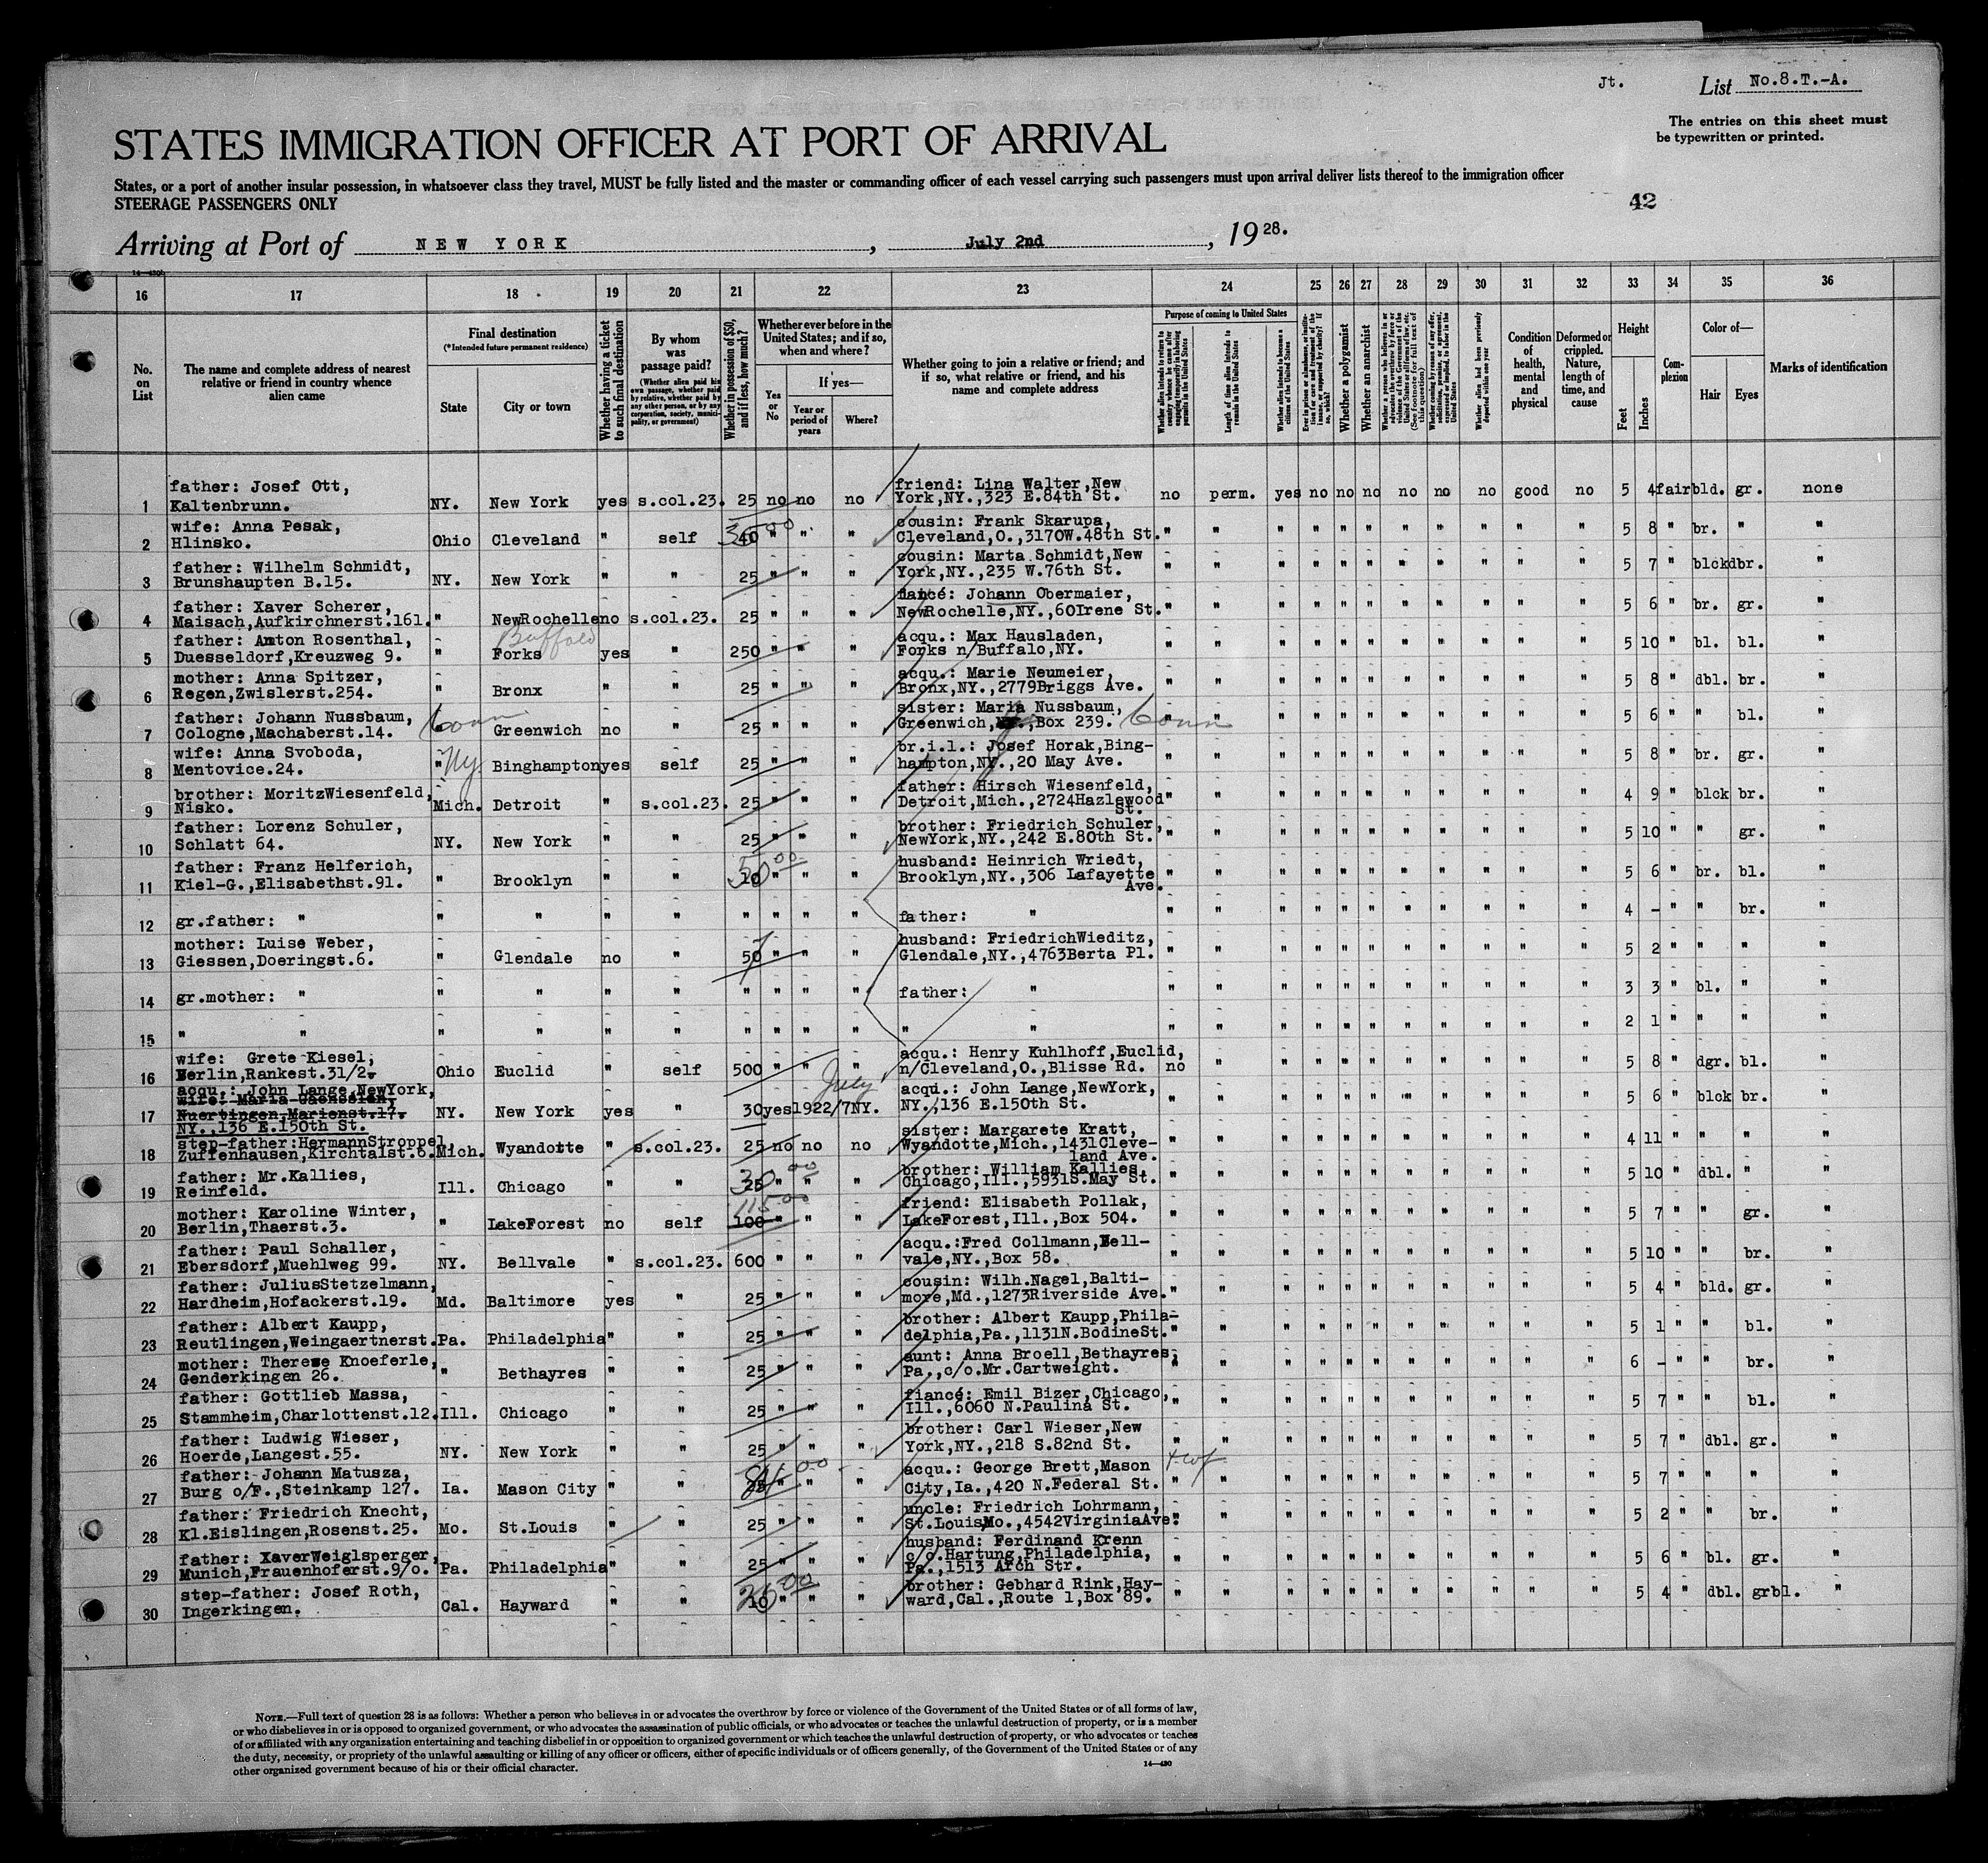 Jt. List No.8.T.-A.
The entries on this sheet must
be typewritten or printed.
STATES IMMIGRATION OFFICER AT PORT OF ARRIVAL
States, or a port of another insular possession, in whatsoever class they travel, MUST be fully listed and the master or commanding officer of each vessel carrying such passengers must upon arrival deliver lists thereof to the immigration officer
STEERAGE PASSENGERS ONLY
42
Arriving at Port of NEW YORK, July 2nd, 1928.
16 17 18 19 20 21 22 23 24 25 26 27 28 29 30 31 32 33 34 35 36
No. on List
The name and complete address of nearest relative or friend in country whence alien came
Final destination
(*Intended future permanent residence)
State
City or town
Whether having a ticket to such final destination
By whom was passage paid?
(Whether alien paid his own passage, whether paid by relative, whether paid by any other person, or by any corporation, society, municipality, or government)
Whether in possession of $50, and if less, how much?
Whether ever before in the United States; and if so, when and where?
Yes or No
If yes—
Year or period of years
Where?
Whether going to join a relative or friend; and if so, what relative or friend, and his name and complete address
Purpose of coming to United States
Length of time alien intends to remain in the United States
Whether alien intends to become a citizen of the United States
Whether a polygamist
Whether an anarchist
Whether alien had been previously deported within one year
Condition of health, mental and physical
Deformed or crippled. Nature, length of time, and cause
Height
Feet
Inches
Complexion
Color of—
Hair
Eyes
Marks of identification
1 father: Josef Ott, Kaltenbrunn. NY. New York yes s.col.23. 25 no no no friend: Lina Walter,New York,NY.,323 E.84th St. no perm. yes no no no no no no good no 5 4 fair bld. gr. none
2 wife: Anna Pesak, Hlinsko. Ohio Cleveland " self 40 " " " cousin: Frank Skarupa, Cleveland,O.,3170W.48th St. " " " " " " " " " " " 5 8 " br. " "
3 father: Wilhelm Schmidt, Brunshaupten B.15. NY. New York " " 25 " " " cousin: Marta Schmidt,New York,NY.,235 W.76th St. " " " " " " " " " " " 5 7 " blck dbr. "
4 father: Xaver Scherer, Maisach,Aufkirchnerst.161. " NewRochelle no s.col.23. 25 " " " fiancé: Johann Obermaier, NewRochelle,NY.,60Irene St. " " " " " " " " " " " 5 6 " br. gr. "
5 father: Anton Rosenthal, Duesseldorf,Kreuzweg 9. " Buffalo Forks yes " 250 " " " acqu.: Max Hausladen, Forks n/Buffalo,NY. " " " " " " " " " " " 5 10 " bl. bl. "
6 mother: Anna Spitzer, Regen,Zwislerst.254. " Bronx " " 25 " " " acqu.: Marie Neumeier, Bronx,NY.,2779Briggs Ave. " " " " " " " " " " " 5 8 " dbl. br. "
7 father: Johann Nussbaum, Cologne,Machaberst.14. Conn Greenwich no " 25 " " " sister: Maria Nussbaum, Greenwich, Box 239. Conn " " " " " " " " " " " 5 6 " " bl. "
8 wife: Anna Svoboda, Mentovice.24. " Ny. Binghampton yes self 25 " " " br.i.l.: Josef Horak,Binghampton,NY.,20 May Ave. " " " " " " " " " " " 5 8 " br. gr. "
9 brother: MoritzWiesenfeld, Nisko. Mich. Detroit " s.col.23. 25 " " " father: Hirsch Wiesenfeld, Detroit,Mich.,2724Hazlewood St. " " " " " " " " " " " 4 9 " blck br. "
10 father: Lorenz Schuler, Schlatt 64. NY. New York " " 25 " " " brother: Friedrich Schuler, NewYork,NY.,242 E.80th St. " " " " " " " " " " " 5 10 " " gr. "
11 father: Franz Helferich, Kiel-G.,Elisabethst.91. " Brooklyn " " 50.00 " " " husband: Heinrich Wriedt, Brooklyn,NY.,306 Lafayette Ave. " " " " " " " " " " " 5 6 " br. bl. "
12 gr.father: " " " " " " " " " father: " " " " " " " " " " " " 4 - " " br. "
13 mother: Luise Weber, Giessen,Doeringst.6. " Glendale no " 50 " " " husband: FriedrichWieditz, Glendale,NY.,4763Berta Pl. " " " " " " " " " " " 5 2 " " " "
14 gr.mother: " " " " " " " " " father: " " " " " " " " " " " " 3 3 " bl. " "
15 " " " " " " " " " " " " " " " " " " " " " " " 2 1 " " " "
16 wife: Grete Kiesel, Berlin,Rankest.31/2. Ohio Euclid " self 500 " " " acqu.: Henry Kuhlhoff,Euclid, n/Cleveland,O.,Blisse Rd. no " " " " " " " " " " 5 8 " dgr. bl. "
17 acqu.: John Lange,NewYork, Nuertingen,Marienst.17. NY.,136 E.150th St. NY. New York yes " 30 yes July 1922/7 NY. acqu.: John Lange,NewYork, NY.,136 E.150th St. " " " " " " " " " " " 5 6 " blck br. "
18 step-father:HermannStroppel, Zuffenhausen,Kirchtalst.6. Mich. Wyandotte " s.col.23. 25 no no no sister: Margarete Kratt, Wyandotte,Mich.,1431Cleveland Ave. " " " " " " " " " " " 4 11 " " " "
19 father: Mr.Kallies, Reinfeld. Ill. Chicago " " 25 30.00 " " " brother: William Kallies, Chicago,Ill.,5931S.May St. " " " " " " " " " " " 5 10 " dbl. " "
20 mother: Karoline Winter, Berlin,Thaerst.3. " LakeForest no self 100 115.00 " " " friend: Elisabeth Pollak, LakeForest,Ill.,Box 504. " " " " " " " " " " " 5 7 " " gr. "
21 father: Paul Schaller, Ebersdorf,Muehlweg 99. NY. Bellvale " s.col.23. 600 " " " acqu.:Fred Collmann,Bellvale,NY.,Box 58. " " " " " " " " " " " 5 10 " " br. "
22 father: JuliusStetzelmann, Hardheim,Hofackerst.19. Md. Baltimore yes " 25 " " " cousin: Wilh.Nagel,Baltimore,Md.,1273Riverside Ave. " " " " " " " " " " " 5 4 " bld. gr. "
23 father: Albert Kaupp, Reutlingen,Weingaertnerst. Pa. Philadelphia " " 25 " " " brother: Albert Kaupp,Philadelphia,Pa.,1131N.BodineSt. " " " " " " " " " " " 5 1 " " bl. "
24 mother: Therese Knoeferle, Genderkingen 26. " Bethayres " " 25 " " " aunt: Anna Broell,Bethayres, Pa.,c/o.Mr.Cartweight. " " " " " " " " " " " 6 - " " br. "
25 father: Gottlieb Massa, Stammheim,Charlottenst.12. Ill. Chicago " " 25 " " " fiancé: Emil Bizer,Chicago, Ill.,6060 N.Paulina St. " " " " " " " " " " " 5 7 " " bl. "
26 father: Ludwig Wieser, Hoerde,Langest.55. NY. New York " " 25 " " " brother: Carl Wieser,New York,NY.,218 S.82nd St. " " " " " " " " " " " 5 7 " dbl. gr. "
27 father: Johann Matusza, Burg o/F.,Steinkamp 127. Ia. Mason City " " 25 " " " acqu.: George Brett,Mason City,Ia.,420 N.Federal St. " " " " " " " " " " " 5 7 " " " "
28 father: Friedrich Knecht, Kl.Eislingen,Rosenst.25. Mo. St.Louis " " 25 " " " uncle: Friedrich Lohrmann, St.Louis,Mo.,4542VirginiaAve. " " " " " " " " " " " 5 2 " " br. "
29 father: XaverWeiglsperger, Munich,Frauenhoferst.9/o. Pa. Philadelphia " " 25 " " " husband: Ferdinand Krenn c/o.Hartung,Philadelphia, Pa.,1513 Arch Str. " " " " " " " " " " " 5 6 " bl. gr. "
30 step-father: Josef Roth, Ingerkingen. Cal. Hayward " " 10 " " " brother: Gebhard Rink,Hayward,Cal.,Route 1,Box 89. " " " " " " " " " " " 5 4 " dbl. grbl. "
NOTE.—Full text of question 28 is as follows: Whether a person who believes in or advocates the overthrow by force or violence of the Government of the United States or of all forms of law,
or who disbelieves in or is opposed to organized government, or who advocates the assassination of public officials, or who advocates or teaches the unlawful destruction of property, or is a member
of or affiliated with any organization entertaining and teaching disbelief in or opposition to organized government or which teaches the unlawful destruction of property, or who advocates or teaches
the duty, necessity, or propriety of the unlawful assaulting or killing of any officer or officers, either of specific individuals or of officers generally, of the Government of the United States or of any
other organized government because of his or their official character.
14—430